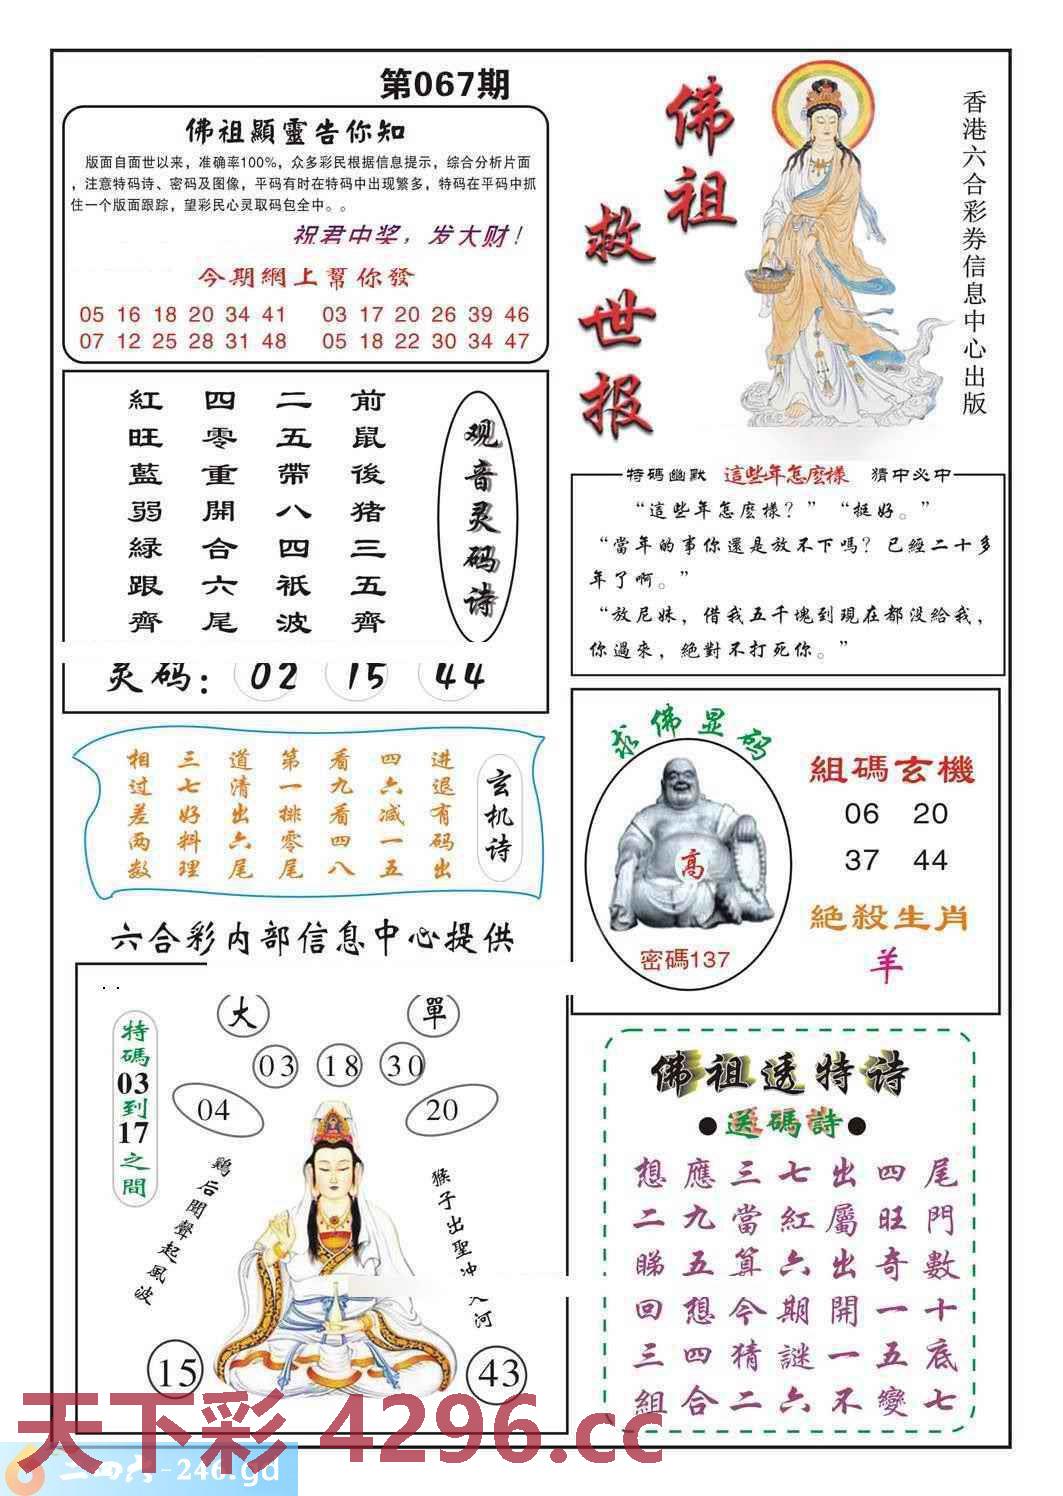 第067期
佛祖顯靈告你知
版面自面世以来，准确率100%，众多彩民根据信息提示，综合分析片面
，注意特码诗、密码及图像，平码有时在特码中出现繁多，特码在平码中抓
住一个版面跟踪，望彩民心灵取码包全中。。
祝君中奖，发大财！
今期網上幫你發
05 16 18 20 34 41 03 17 20 26 39 46
07 12 25 28 31 48 05 18 22 30 34 47
佛祖
救世报
香港六合彩券信息中心出版
观音灵码诗
前鼠後猪三五齊
二五帶八四祇波
四零重開合六尾
紅旺藍弱緑跟齊
灵码： 02 15 44
特碼幽默 這些年怎麽樣 猜中必中
“這些年怎麽樣？”“挺好。”
“當年的事你還是放不下嗎？已經二十多
年了啊。”
“放尼妹，借我五千塊到現在都没給我，
你過來，絶對不打死你。”
玄机诗
进退有码出
四六减一五
看九看四八
第一排零尾
道清出六尾
三七好料理
相过差两数
求佛显码
高
密碼137
組碼玄機
06 20
37 44
絕殺生肖
羊
六合彩内部信息中心提供
大 單
03 18 30
04 20
特碼03到17之間
鷄后聞聲起風波
猴子出聖冲 河
15 43
佛祖透特诗
●送碼詩●
想應三七出四尾
二九當紅屬旺門
睇五算六出奇數
回想今期開一十
三四猜謎一五底
組合二六不變七
天下彩 4296.cc
二四六-246.gd